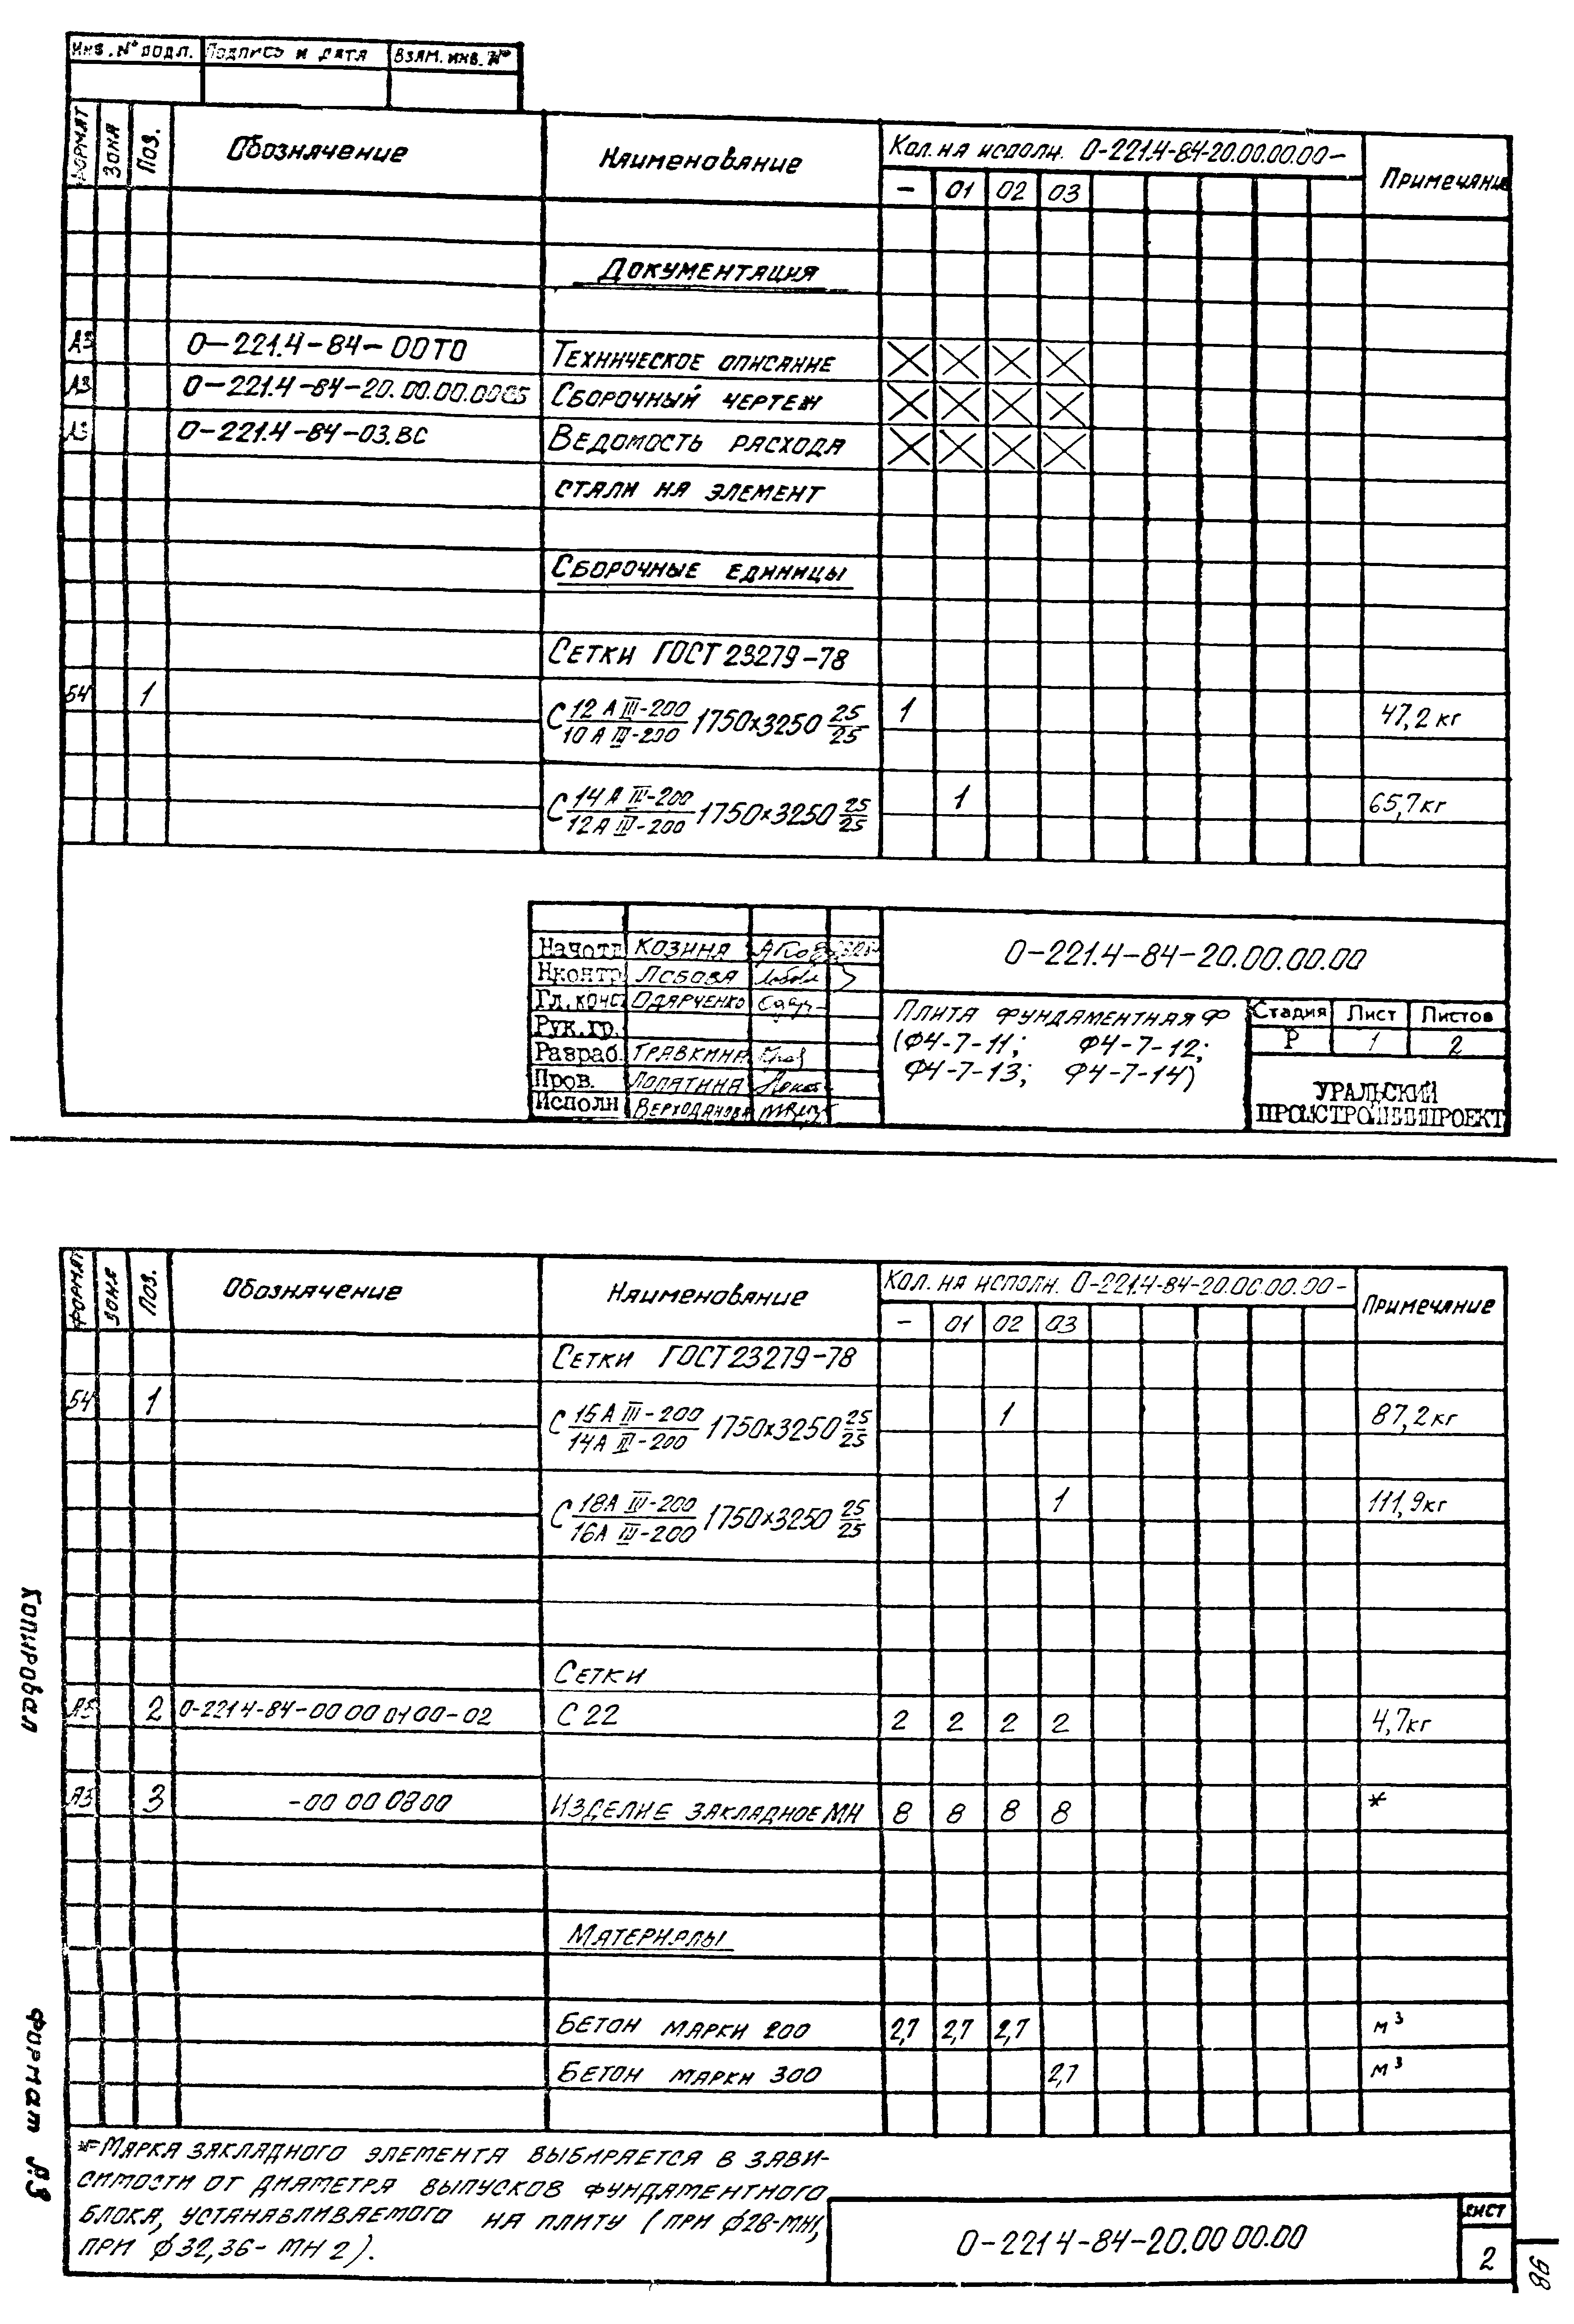 Инв. № подл. Подпись и дата Взам. инв. №
Формат Зона Поз. Обозначение Наименование Кол. на исполн. 0-221.4-84-20.00.00.00- Примечание
- 01 02 03
Документация
А3 0-221.4-84-00ТО Техническое описание
А3 0-221.4-84-20.00.00.00СБ Сборочный чертеж
А3 0-221.4-84-03.ВС Ведомость расхода
стали на элемент
Сборочные единицы
Сетки ГОСТ 23279-78
Б4 1 С 12 А III-200 / 10 А III-200 1750х3250 25/25 1 47,2 кг
С 14 А III-200 / 12 А III-200 1750х3250 25/25 1 65,7 кг
Нач отд Козина
Н контр Лобова
Гл. конс Одярченко
Рук. гр.
Разраб. Травкина
Пров. Лопатина
Исполн Верходанова
0-221.4-84-20.00.00.00
Плита фундаментная Ф
(Ф4-7-11; Ф4-7-12;
Ф4-7-13; Ф4-7-14)
Стадия Лист Листов
Р 1 2
УРАЛЬСКИЙ
ПРОМСТРОЙНИИПРОЕКТ
Формат Зона Поз. Обозначение Наименование Кол. на исполн. 0-221.4-84-20.00.00.00- Примечание
- 01 02 03
Сетки ГОСТ 23279-78
Б4 1 С 16 А III-200 / 14 А III-200 1750х3250 25/25 1 87,2 кг
С 18 А III-200 / 16 А III-200 1750х3250 25/25 1 111,9 кг
Сетки
А3 2 0-221 4-84-00 00 01 00-02 С 22 2 2 2 2 4,7 кг
А3 3 -00 00 08 00 Изделие закладное МН 8 8 8 8 *
Материалы
Бетон марки 200 2,7 2,7 2,7 м³
Бетон марки 300 2,7 м³
*-Марка закладного элемента выбирается в зави-
симости от диаметра выпусков фундаментного
блока, устанавливаемого на плиту (при ф28-МН1,
при ф 32,36- МН 2).
0-221 4-84-20.00 00.00
Лист
2
Копировал
Формат А3
98